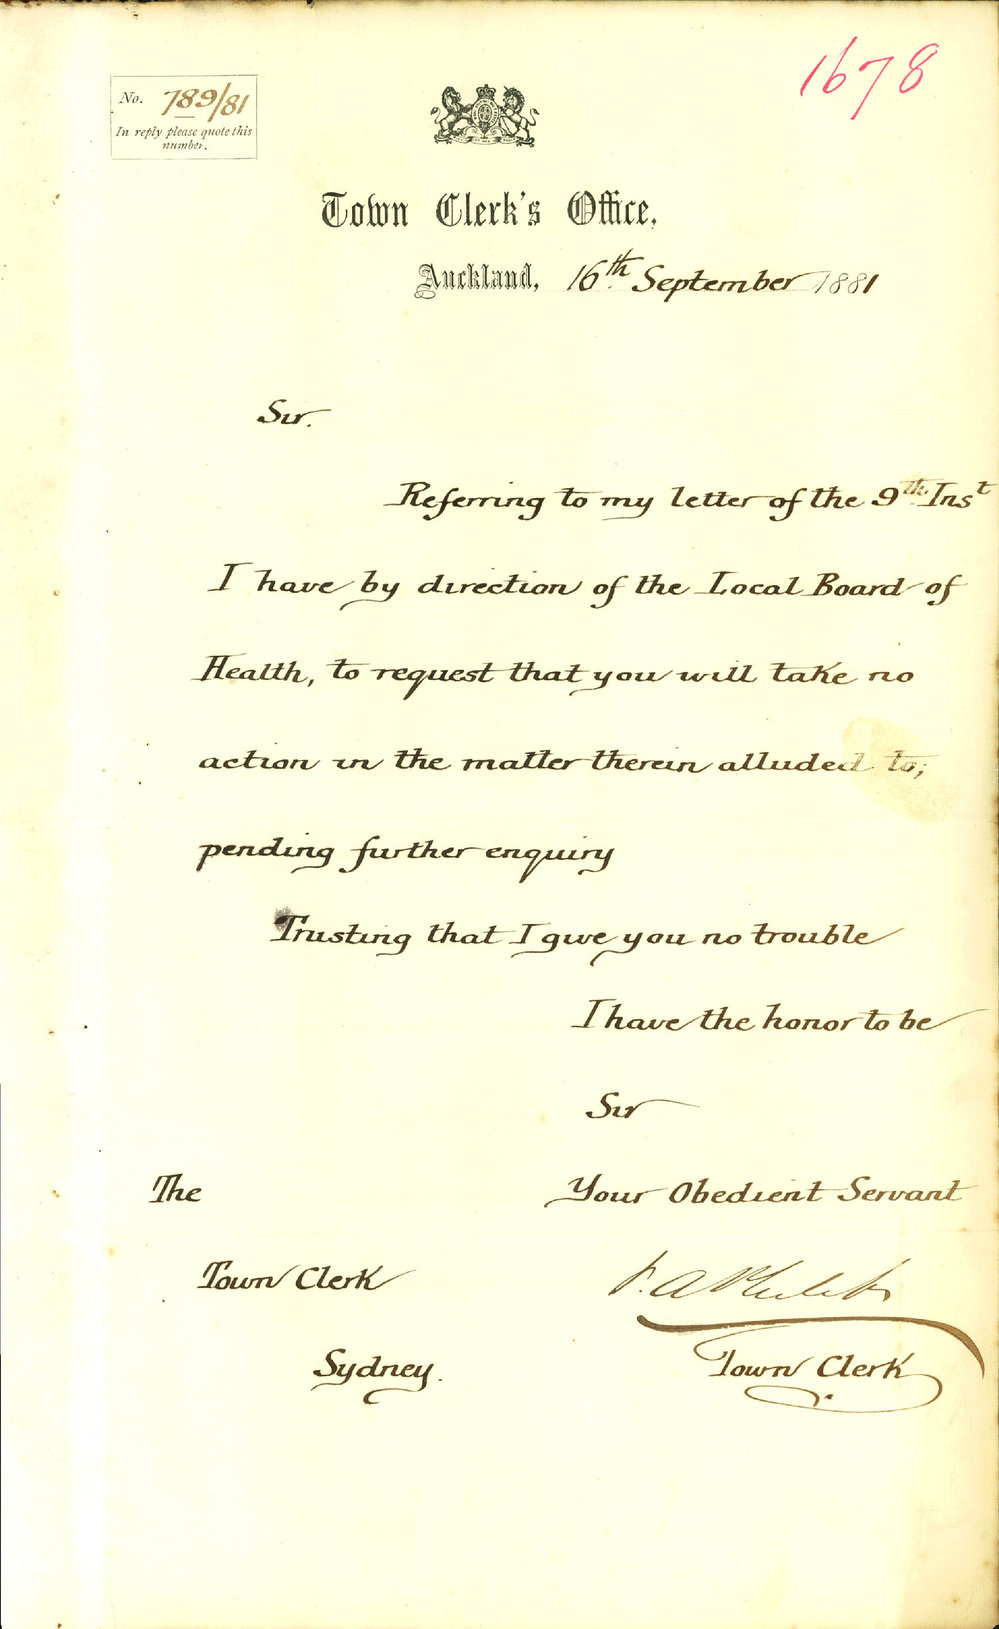 1678
No. 789/81
In reply please quote this
number.
Town Clerk's Office,
Auckland, 16th September 1881
Sir.
Referring to my letter of the 9th Inst
I have by direction of the Local Board of
Health, to request that you will take no
action in the matter therein alluded to;
pending further enquiry
Trusting that I give you no trouble
I have the honor to be
Sir
The Your Obedient Servant
Town Clerk
Sydney. Town Clerk